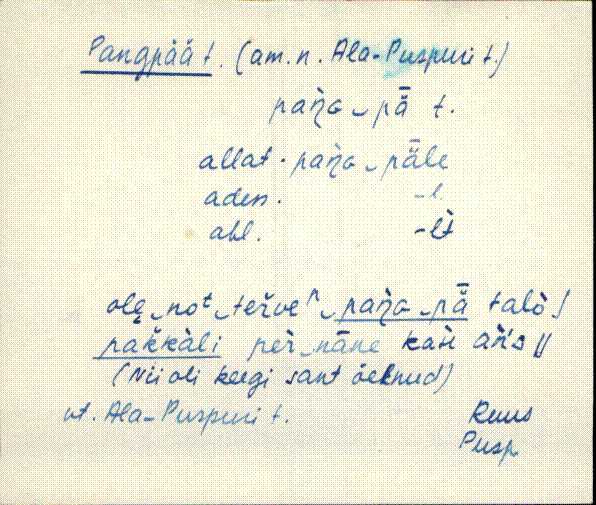 Pangpää t. (am. n. Ala-Puspuri t.)
paŋ̀G‿pǟ t.
allat. paŋ̀G‿päle
adess. -l.
abl. -lt̀
olȩ‿noᵗ‿teřveⁿ‿paŋ̀G‿pǟ talò /
pakkàli per‿näne kaìi ||
(Nii oli keegi sant öelnud)
vt. Ala-Puspuri t.
Ruus
Pusp